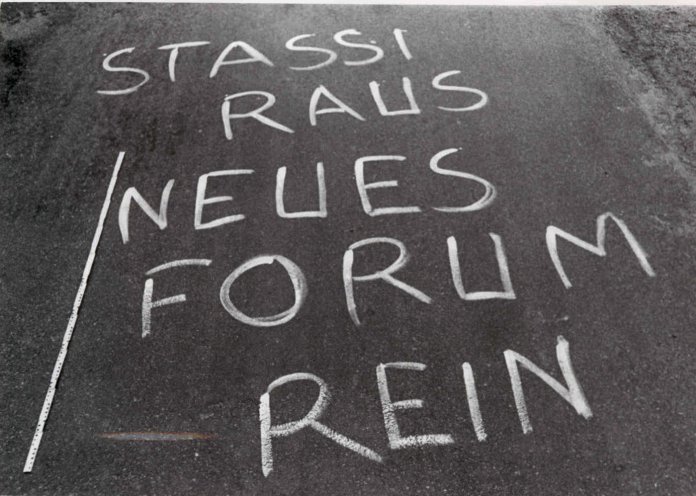 STASSI
RAUS
NEUES
FORUM
REIN